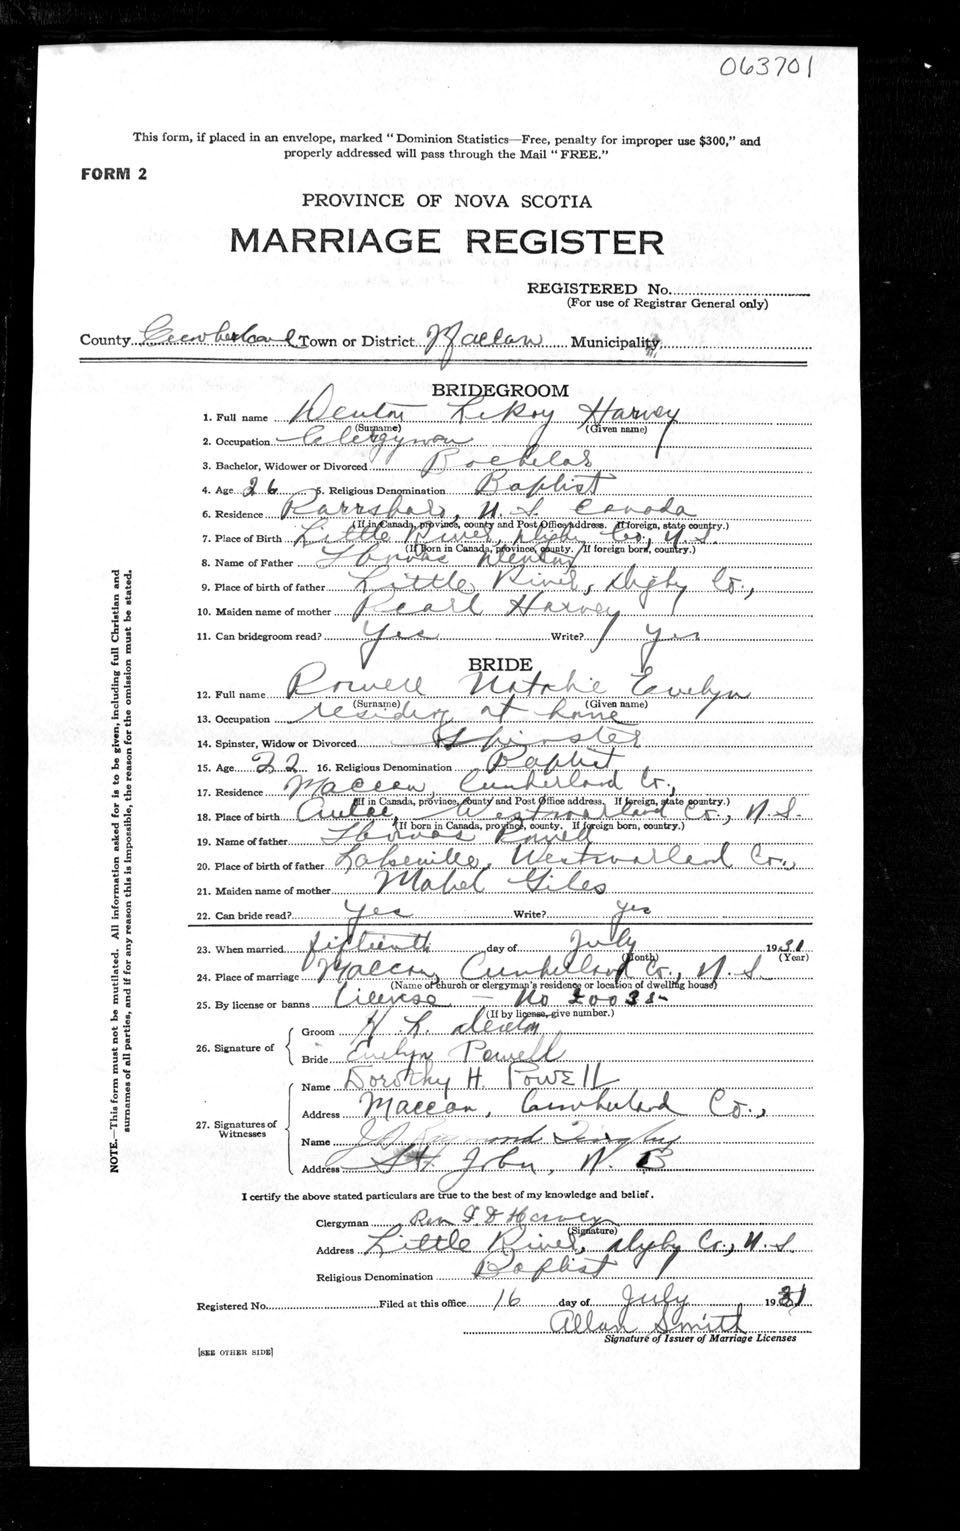 063701
This form, if placed in an envelope, marked "Dominion Statistics—Free, penalty for improper use $300," and
properly addressed will pass through the Mail "FREE."
FORM 2
PROVINCE OF NOVA SCOTIA
MARRIAGE REGISTER
REGISTERED No.
(For use of Registrar General only)
County Cumberland Town or District Maccan Municipality
BRIDEGROOM
1. Full name Denton LeRoy Harvey
(Surname) (Given name)
2. Occupation Clergyman
3. Bachelor, Widower or Divorced Bachelor
4. Age 26 5. Religious Denomination Baptist
6. Residence Parrsboro, N.S. Canada
(If in Canada, province, county and Post Office address. If foreign, state country.)
7. Place of Birth Little River, Digby Co., N.S.
(If Born in Canada, province, county. If foreign born, country.)
8. Name of Father Thomas Denton
9. Place of birth of father Little River, Digby Co.,
10. Maiden name of mother Pearl Harvey
11. Can bridegroom read? Yes Write? Yes
BRIDE
12. Full name Powell Natalie Evelyn
(Surname) (Given name)
13. Occupation residing at home
14. Spinster, Widow or Divorced Spinster
15. Age 22 16. Religious Denomination Baptist
17. Residence Maccan, Cumberland Co.,
(If in Canada, province, county and Post Office address. If foreign, state country.)
18. Place of birth Westmorland Co., N.S.
(If born in Canada, province, county. If foreign born, country.)
19. Name of father Thomas Powell
20. Place of birth of father Westmorland Co.,
21. Maiden name of mother Mabel Giles
22. Can bride read? Yes Write? Yes
23. When married fifteenth day of July 1931
(Month) (Year)
24. Place of marriage Maccan, Cumberland Co., N.S.
(Name of church or clergyman's residence or location of dwelling house)
25. By license or banns License — No 20035
(If by license, give number.)
26. Signature of
Groom H. L. Denton
Bride Evelyn Powell
27. Signatures of Witnesses
Name Dorothy H. Powell
Address Maccan, Cumberland Co.,
Name Raymond Tingley
Address St. John, N.B
I certify the above stated particulars are true to the best of my knowledge and belief.
Clergyman Rev F D Harvey
(Signature)
Address Little River, Digby Co., N.S.
Religious Denomination Baptist
Registered No. Filed at this office 16 day of July 1931
Allan Smith
Signature of Issuer of Marriage Licenses
[SEE OTHER SIDE]
NOTE.—This form must not be mutilated. All information asked for is to be given, including full Christian and
surnames of all parties, and if for any reason this is impossible, the reason for the omission must be stated.